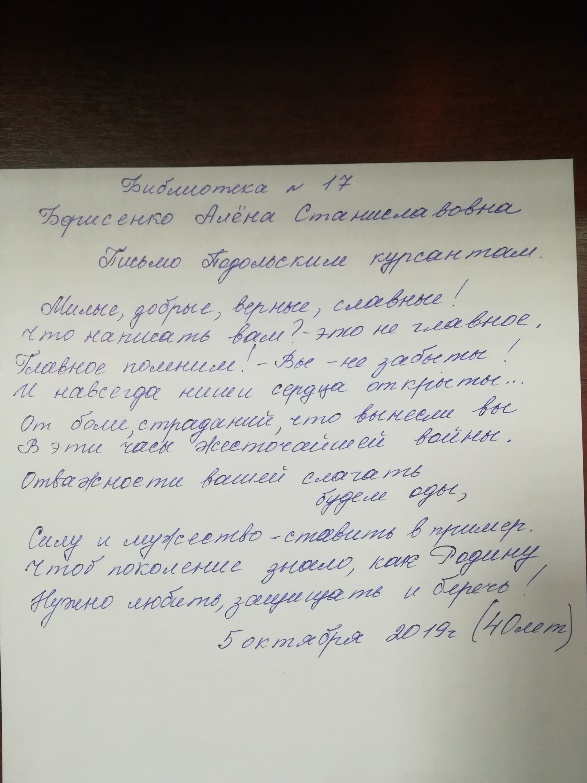 Библиотека № 17
Борисенко Алёна Станиславовна
Письмо Подольским курсантам.
Милые, добрые, верные, славные!
Что написать вам? - это не главное.
Главное помним! - Вы - не забыты!
И навсегда наши сердца открыты...
От боли, страданий, что вынесли вы
В эти часы жесточайшей войны.
Отважности вашей слагать
будем оды,
Силу и мужество - ставить в пример.
Чтоб поколение знало, как Родину
Нужно любить, защищать и беречь!
5 октября 2019г (40лет)